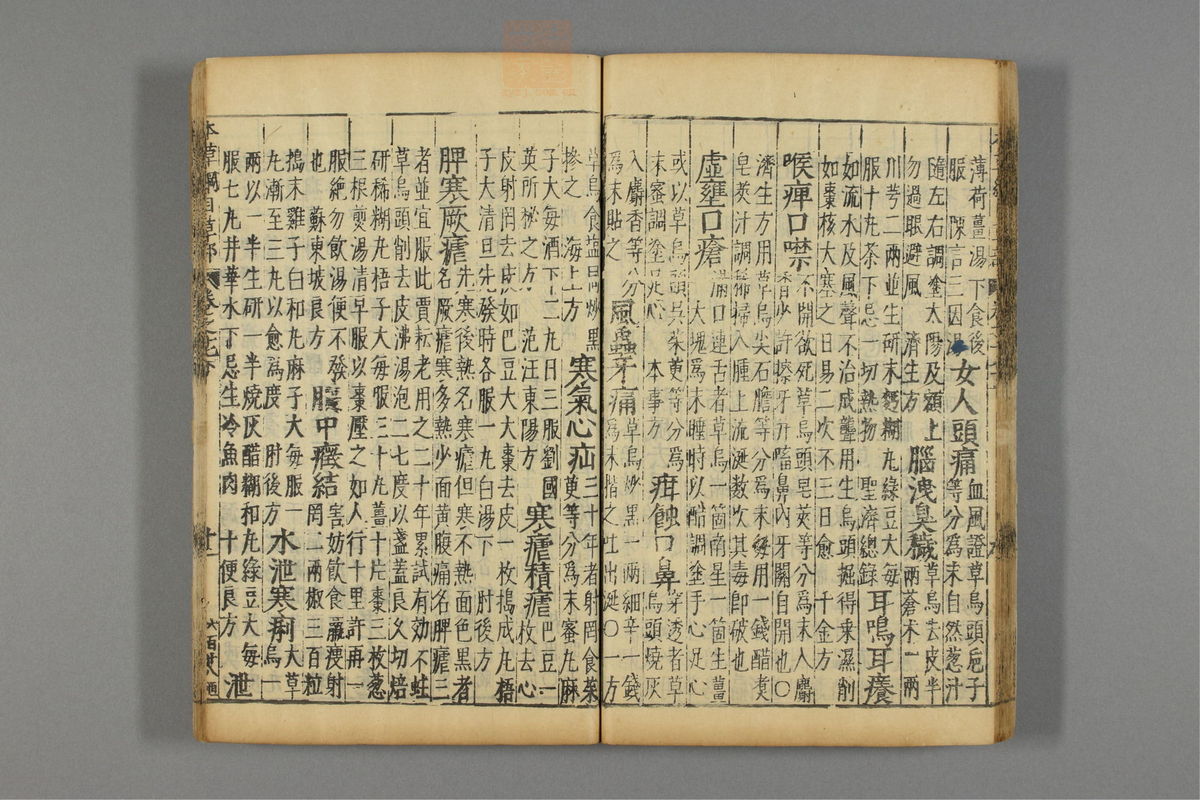 薄荷薑湯下食後
服　陳言三因
女人頭痛
血風證草烏頭巵子
等分為末自然葱汁
隨左右調塗太陽及額上
勿過眼避風　濟生方
腦洩臭穢
草烏去皮半
兩蒼术一兩
川芎二兩並生研末麪糊丸綠豆大每
服十丸茶下忌一切熱物　聖濟總錄
耳鳴耳癢
如流水及風聲不治成聾用生烏頭掘得乘濕削
如棗核大塞之日易二次不三日愈　千金方
喉痺口噤
不開欲死草烏頭皂莢等分為末入麝
香少許擦牙并㗜鼻內牙關自開也○
濟生方用草烏尖石膽等分為末每用一錢醋煮
皂莢汁調稀掃入腫上流涎數次其毒即破也
虛壅口瘡
滿口連舌者草烏一箇南星一箇生薑
一大塊為末睡時以醋調塗手心足心
或以草烏頭吳茱萸等分為
末蜜調塗足心　本事方
疳蝕口鼻
穿透者草
烏頭燒灰
入麝香等分
為末貼之
風蟲牙痛
草烏炒黑一兩細辛一錢
為末揩之吐出涎○一方
草烏食盐同炒黑
摻之　海上方
寒氣心疝
三十年者射罔食茱
萸等分為末蜜丸麻
子大每酒下二丸日三服劉國
英所秘之方　范汪東陽方
寒瘧積瘧
巴豆一
枚去心
皮射罔去皮如巴豆大大棗去皮一枚搗成丸梧
子大清旦先發時各服一丸白湯下　肘後方
脾寒厥瘧
先寒後熱名寒瘧但寒不熱面色黑者
名厥瘧寒多熱少面黃腹痛名脾瘧三
者並宜服此賈耘老用之二十年累試有効不蛀
草烏頭削去皮沸湯泡二七度以盞蓋良久切焙
研稀糊丸梧子大每服三十丸薑十片棗三枚葱
三根煎湯清早服以棗壓之如人行十里許再一
服絕勿飲湯便不發
也　蘇東坡良方
腹中癥結
害妨飲食羸瘦射
罔二兩椒三百粒
搗末雞子白和丸麻子大每服一
丸漸至三丸以愈為度　肘後方
水泄寒痢
大草
烏一
兩以一半生研一半燒灰醋糊和丸綠豆大每
服七丸井華水下忌生冷魚肉　十便良方
泄
本草綱目草部